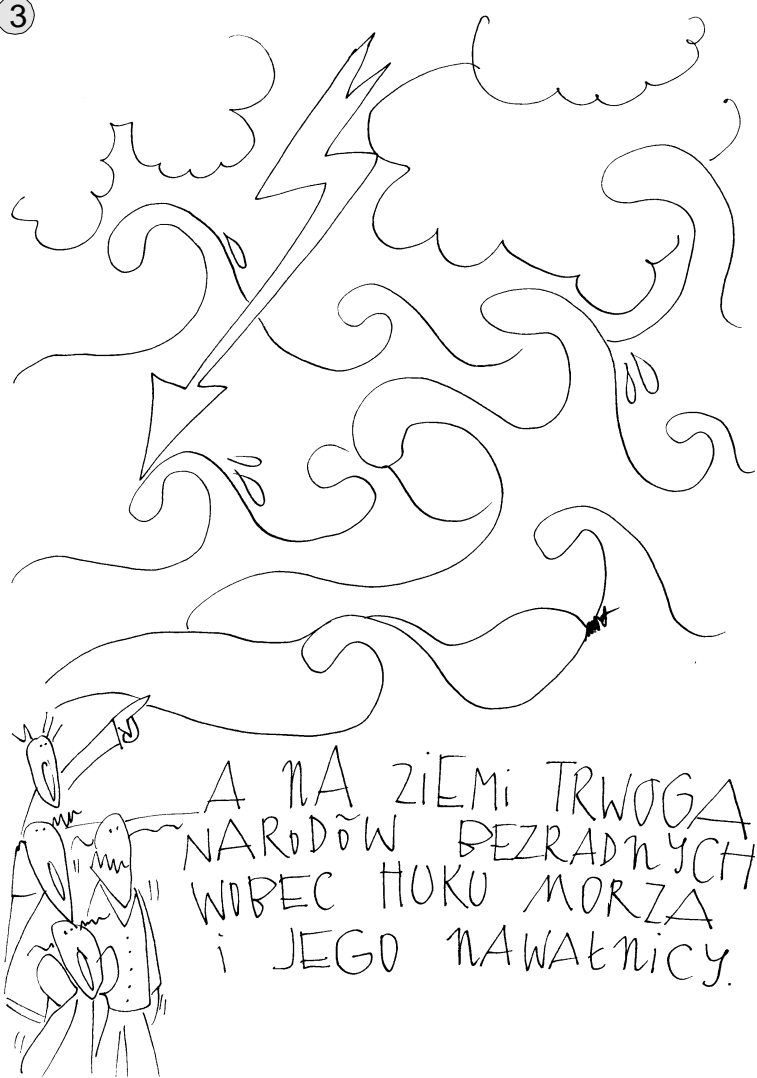 3
A NA ZiEMi TRWOGA
NARODÓW BEZRADNYCH
WOBEC HUKU MORZA
i JEGO NAWAŁNiCY.